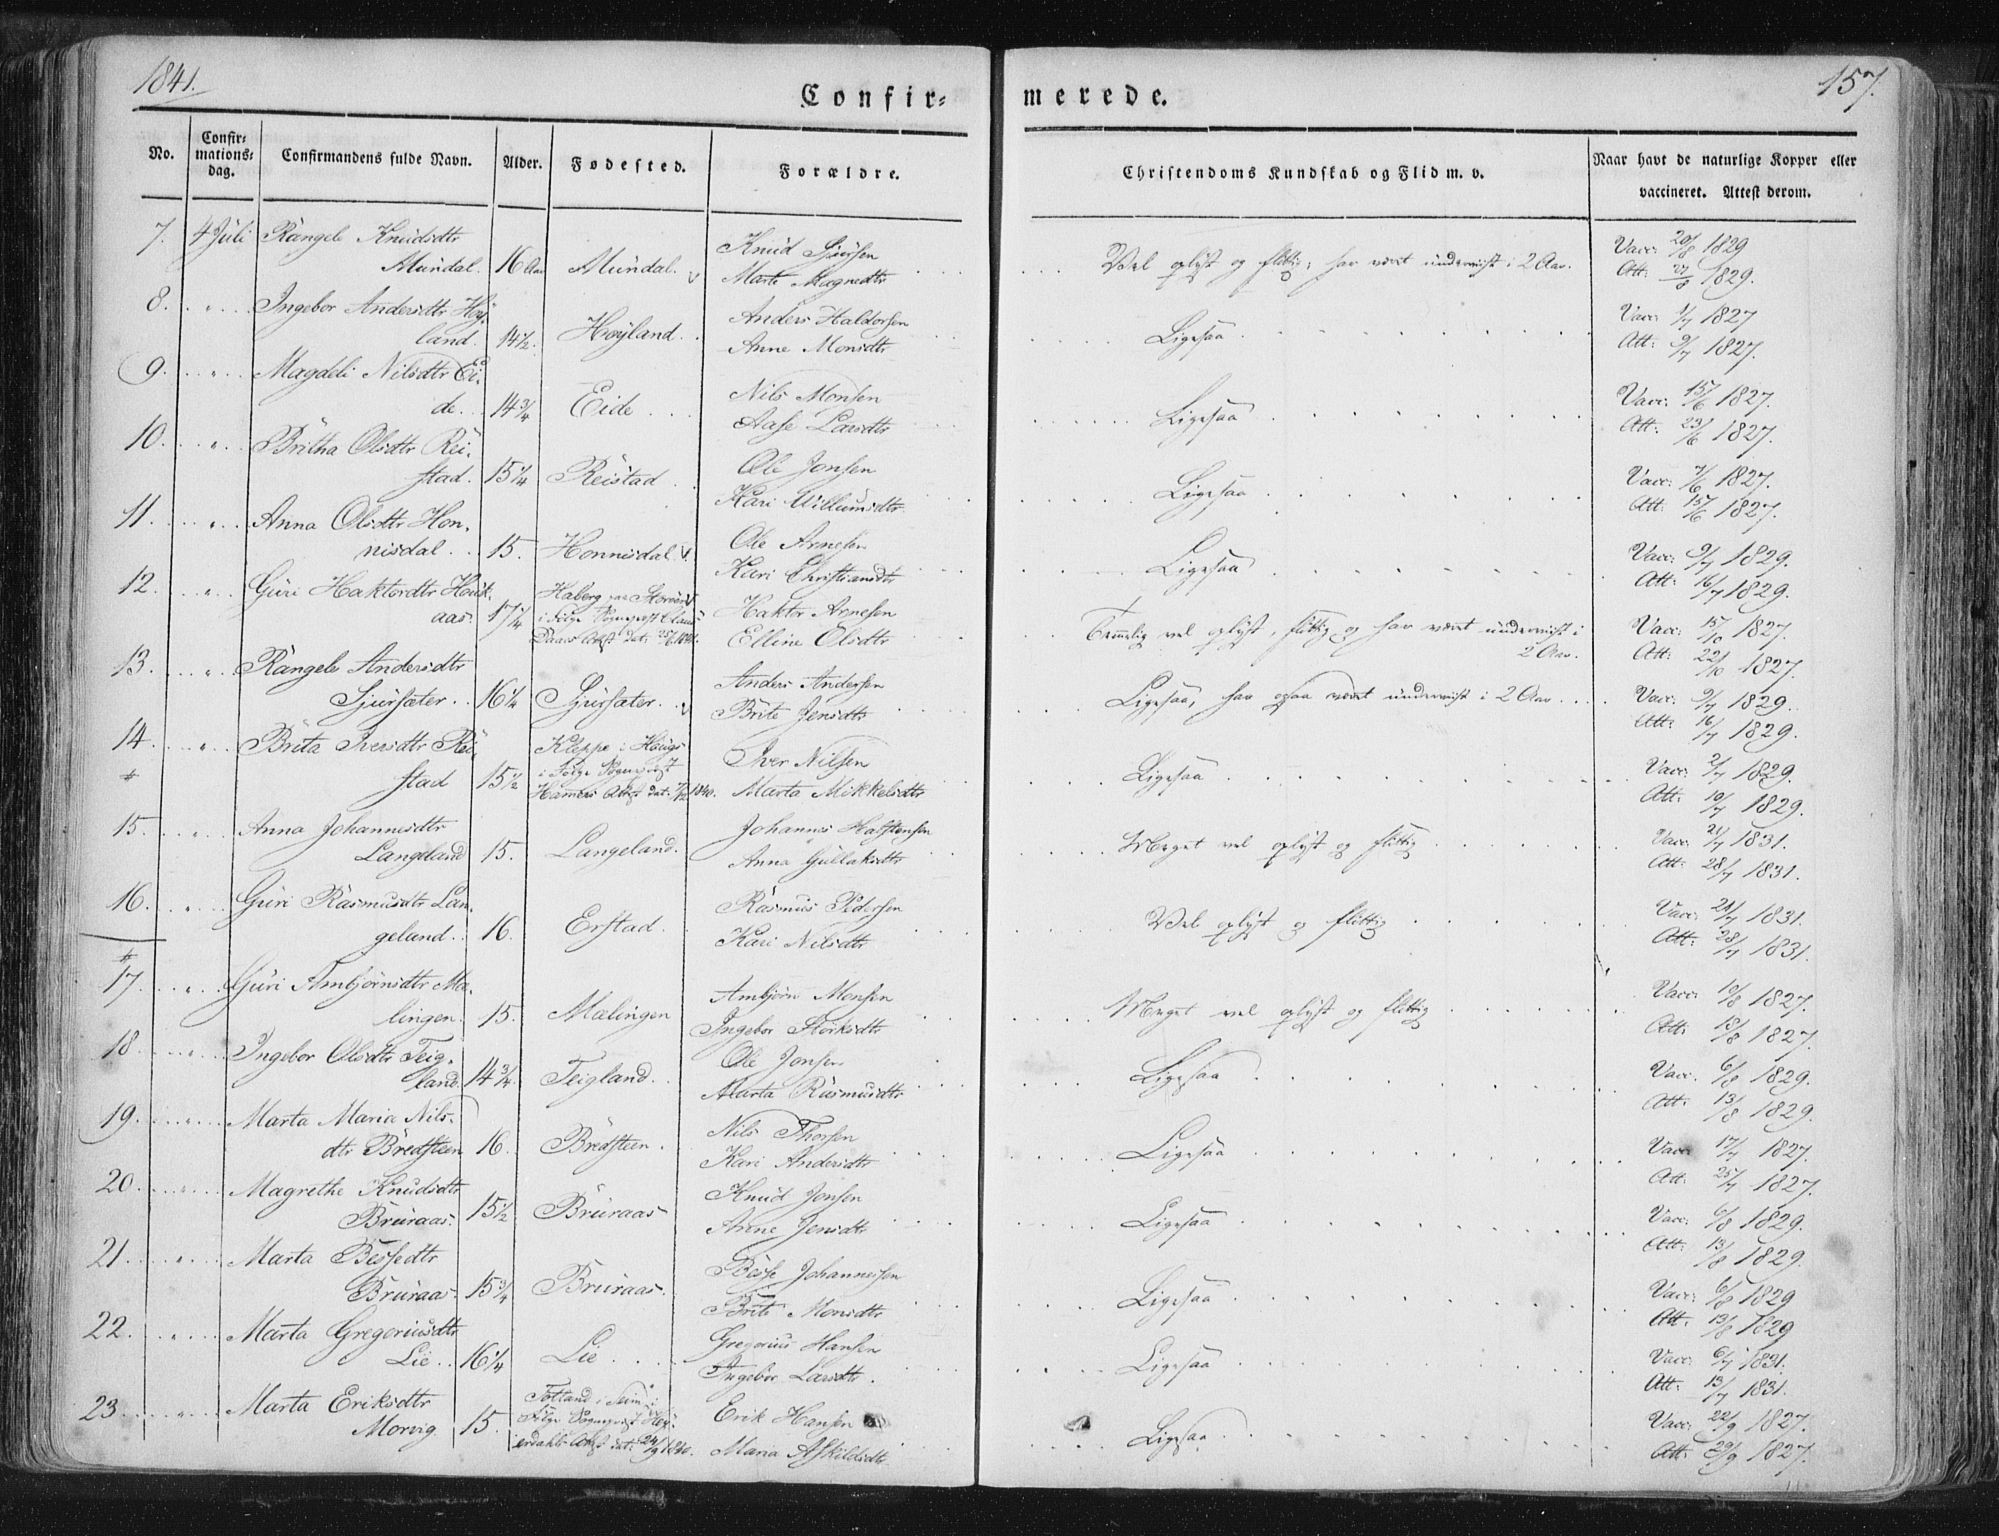 1841.
157.
Confir=
merede.
No.
Confir-
mations-
dag.
Confirmandens fulde Navn.
Alder.
Fødested.
Forældre.
Christendoms Kundskab og Flid m. v.
Naar havt de naturlige Kopper eller
vaccineret. Attest derom.
7. 4 Juli Rangele Knudsdtr
Mundal. 16 Aar Mundal.
Knud Sjursen
Marte Magnedtr
Vel oplyst og flittig, har været underviist i 2 Aar.
Vacc: 20/8 1829
Att: 27/8 1829.
8. " Ingebor Andersdtr Høy-
land. 14½. Høyland.
Anders Haldorsen
Anne Monsdtr
Ligesaa
Vacc: 1/7 1827
Att: 9/7 1827.
9. " Magdeli Nilsdtr Ei-
de. 14¾ Eide
Nils Monsen
Aase Larsdtr
Ligesaa
Vacc: 15/6 1827.
Att: 23/6 1827.
10. " Britha Olsdtr Rei-
stad. 15¼ Reistad
Ole Jonsen
Kari Willumsdtr
Ligesaa
Vacc: 7/6 1827.
Att: 15/6 1827.
11. " Anna Olsdtr Hon-
nisdal. 15. Honnisdal
Ole Arnesen
Kari Christiansdtr
Ligesaa
Vacc: 9/7 1829.
Att: 16/7 1829.
12. " Guri Haktordtr Hauk-
aas. 17¼
Haberg paa
i Følge Sognepræst Claus
Daaes Attst dat: 25/6 1840.
Haktor Arnesen
Elline Olsdtr
Temmelig vel oplyst, flittig og har været underviist i
2 Aar.
Vacc: 15/10 1827.
Att: 22/10 1827.
13. " Rangele Andersdtr
Sjursæter. 16¼ Sjursæter.
Anders Andersen
Brite Jensdtr
Ligesaa, har ogsaa været underviist i 2 Aar
Vacc: 9/7 1829.
Att: 16/7 1829.
14. " Brita Iversdtr Rei-
stad 15½
Kleppe i Houg
i Følge Sognepræst
Hamers Attst dat: 7/12 1840.
Iver Nilsen
Marta Mikkelsdtr
Ligesaa
Vacc: 2/7 1829.
Att: 10/7 1829.
15. " Anna Johannesdtr
Langeland 15. Langeland.
Johannes Halstensen
Anna Gullaksdtr
Meget vel oplyst og flittig
Vacc: 21/7 1831.
Att: 28/7 1831.
16. " Guri Rasmusdtr Lan-
geland. 16. Erstad.
Rasmus Pedersen
Kari Nilsdtr
Vel oplyst og flittig
Vacc: 21/7 1831.
Att: 28/7 1831.
17. " Guri Ambjørnsdtr Mæ-
lingen. 15. Mælingen
Ambjørn Monsen
Ingebor Størksdtr
Meget vel oplyst og flittig
Vacc: 10/8 1827.
Att: 18/8 1827.
18 " Ingebor Olsdtr Teig-
land. 14¾. Teigland.
Ole Jonsen
Marta Rasmusdtr
Ligesaa
Vacc. 6/8 1829.
Att: 13/8 1829.
19. " Marta Maria Nils-
dtr Bredsteen 16. Bredsteen.
Nils Thorsen
Kari Andersdtr
Ligesaa
Vacc. 17/7 1827.
Att: 25/7 1827.
20. " Magrethe Knudsdtr
Bruraas. 15½ Bruraas
Knud Jonsen
Anne Jensdtr
Ligesaa
Vacc: 6/8 1829.
Att: 13/8 1829.
21. " Marta Bessedtr
Bruraas. 15¾ Bruraas.
Besse Johannesen
Brite Monsdtr
Ligesaa
Vacc: 6/8 1829
Att. 13/8 1829
22. " Marta Gregoriusdtr
Lie. 16¼ Lie.
Gregorius Hansen
Ingebor Larsdtr.
Ligesaa
Vacc: 6/7 1831.
Att: 13/7 1831.
23. " Marta Eriksdtr
Morvig. 15.
Totland i Seim i
Følge Sognepræst Hey-
erdahls Attst dat: 24/9 1840.
Erik Hansen
Maria Askildsdtr
Ligesaa
Vacc: 22/9 1827.
Att: 29/9 1827.